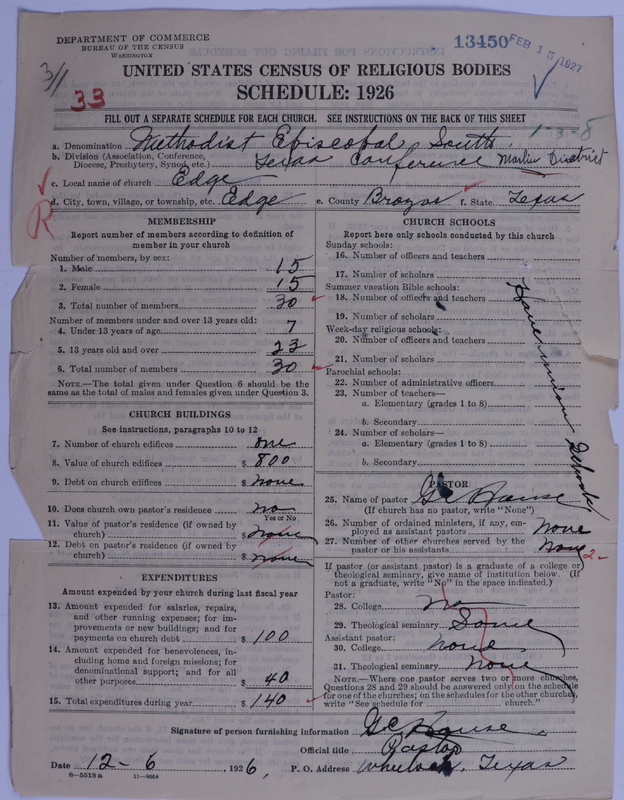 DEPARTMENT OF COMMERCE
BUREAU OF THE CENSUS
WASHINGTON
13450 FEB 15 1927
3/1
33
UNITED STATES CENSUS OF RELIGIOUS BODIES
SCHEDULE: 1926
FILL OUT A SEPARATE SCHEDULE FOR EACH CHURCH. SEE INSTRUCTIONS ON THE BACK OF THIS SHEET
1-3-8
a. Denomination Methodist Episcopal South
b. Division (Association, Conference, Diocese, Presbytery, Synod, etc.) Texas Conference Marlin District
c. Local name of church Edge
d. City, town, village, or township, etc. Edge e. County Brazos f. State Texas
R
MEMBERSHIP
Report number of members according to definition of
member in your church
Number of members, by sex:
1. Male 15
2. Female 15
3. Total number of members 30
Number of members under and over 13 years old:
4. Under 13 years of age 7
5. 13 years old and over 23
6. Total number of members 30
NOTE.—The total given under Question 6 should be the
same as the total of males and females given under Question 3.
CHURCH BUILDINGS
See instructions, paragraphs 10 to 12
7. Number of church edifices one
8. Value of church edifices $ 800
9. Debt on church edifices $ none
10. Does church own pastor's residence? no
Yes or No
11. Value of pastor's residence (if owned by
church) $ none
12. Debt on pastor's residence (if owned by
church) $ none
EXPENDITURES
Amount expended by your church during last fiscal year
13. Amount expended for salaries, repairs,
and other running expenses; for im-
provements or new buildings; and for
payments on church debt $ 100
14. Amount expended for benevolences, in-
cluding home and foreign missions; for
denominational support; and for all
other purposes $ 40
15. Total expenditures during year $ 140
CHURCH SCHOOLS
Report here only schools conducted by this church
Sunday schools:
16. Number of officers and teachers
17. Number of scholars
Summer vacation Bible schools:
18. Number of officers and teachers
19. Number of scholars
Week-day religious schools:
20. Number of officers and teachers
21. Number of scholars
Parochial schools:
22. Number of administrative officers
23. Number of teachers—
a. Elementary (grades 1 to 8)
b. Secondary
24. Number of scholars—
a. Elementary (grades 1 to 8)
b. Secondary
Have union School
PASTOR
25. Name of pastor G C Hause
(If church has no pastor, write "None")
26. Number of ordained ministers, if any, em-
ployed as assistant pastors None
27. Number of other churches served by the
pastor or his assistants None 2-
If pastor (or assistant pastor) is a graduate of a college or
theological seminary, give name of institution below. (If
not a graduate, write "No" in the space indicated.)
Pastor:
28. College no
29. Theological seminary Some
Assistant pastor:
30. College none
31. Theological seminary none
NOTE.—Where one pastor serves two or more churches,
Questions 28 and 29 should be answered only on the schedule
for one of the churches; on the schedules for the other churches,
write "See schedule for church."
Signature of person furnishing information G C Hause
Official title Pastor
Date 12-6, 1926, P. O. Address Wheelock, Texas
8-5518 a 11-9054